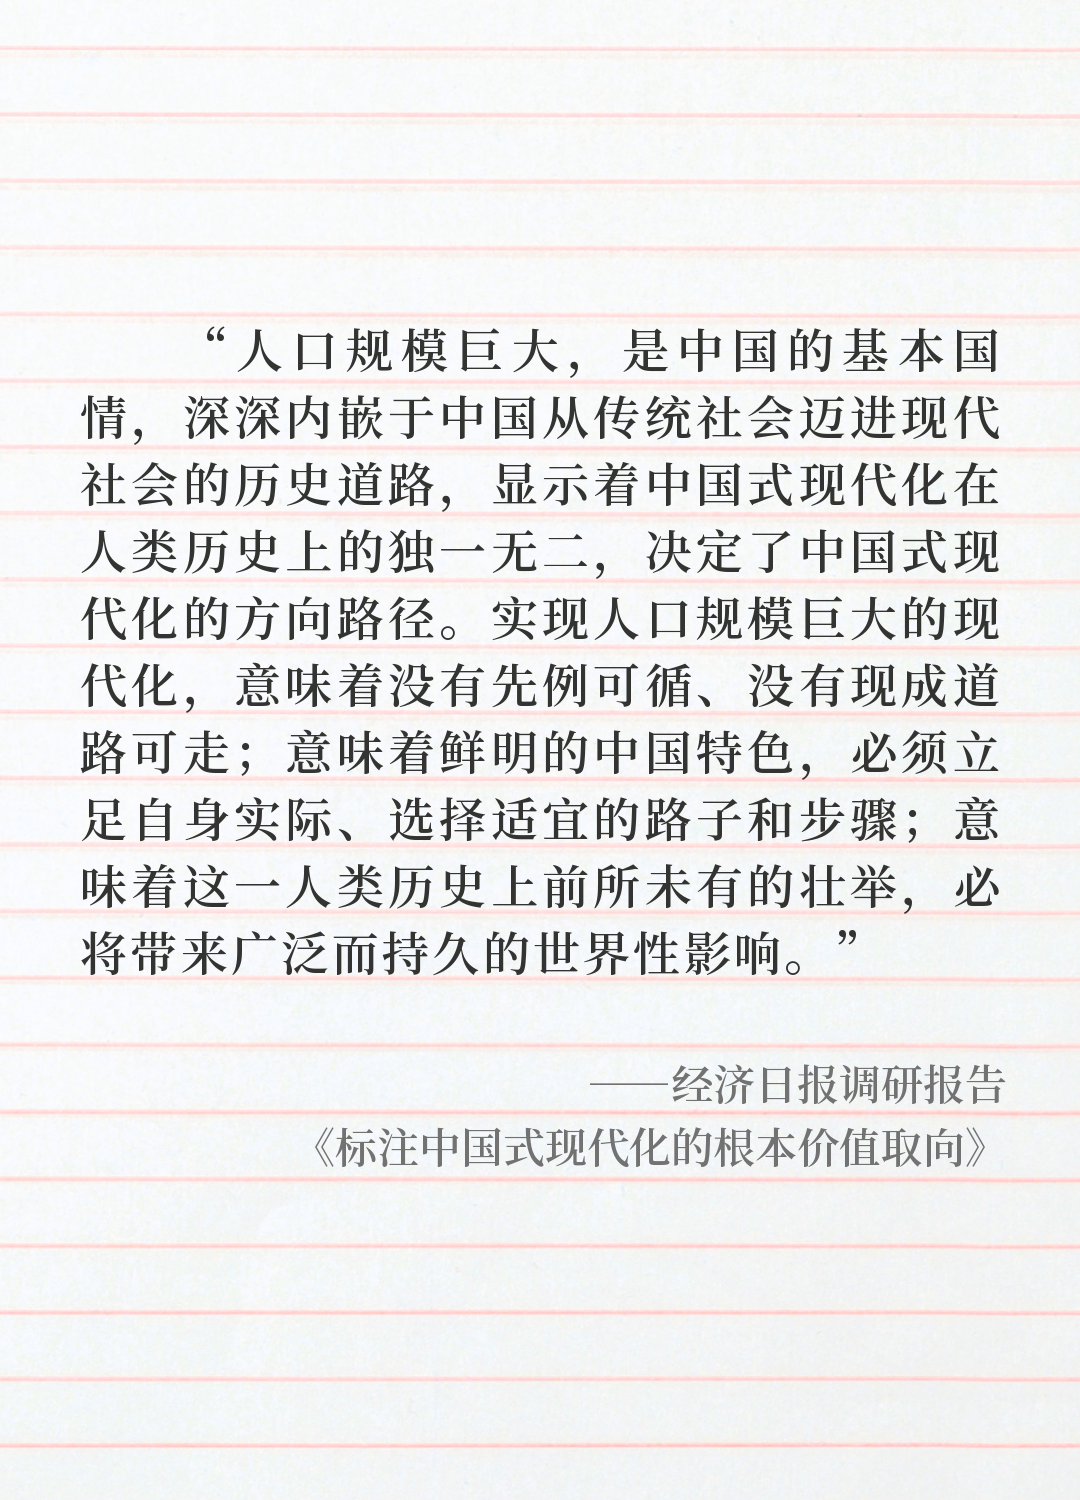 “人口规模巨大，是中国的基本国
情，深深内嵌于中国从传统社会迈进现代
社会的历史道路，显示着中国式现代化在
人类历史上的独一无二，决定了中国式现
代化的方向路径。实现人口规模巨大的现
代化，意味着没有先例可循、没有现成道
路可走；意味着鲜明的中国特色，必须立
足自身实际、选择适宜的路子和步骤；意
味着这一人类历史上前所未有的壮举，必
将带来广泛而持久的世界性影响。”
——经济日报调研报告
《标注中国式现代化的根本价值取向》